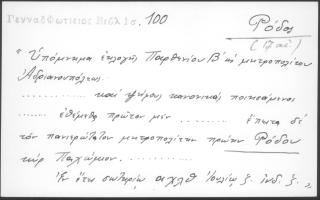 Γενναδ. Φωτιείος Βιβλ. Iσ. 100
Ρόδος
(17 αἰ.)
"Ὑπόμνημα ἐκλογῆς Παρθενίου Β' ὡς μητροπολίτου
Ἀδριανουπόλεως..........................
................ καὶ ψήφους κανονικὰς ποιησάμενοι
............... ἐθέμεθα πρῶτον μὲν ............... ἔπειτα δὲ
τὸν πανιερώτατον μητροπολίτην πρώην Ῥόδου
κὺρ Παχώμιον. ............
Ἐν ἔτει σωτηρίῳ αχλθ Ἰουλίῳ ζ. ἰνδ. ζ. "